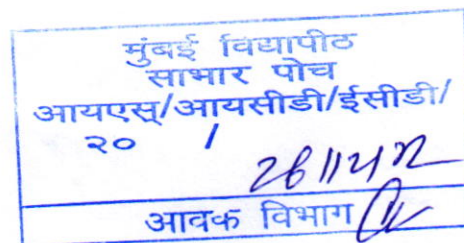 मुंबई विद्यापीठ
साभार पोच
आयएस्/आयसीडी/ईसीडी/
२० /
आवक विभाग